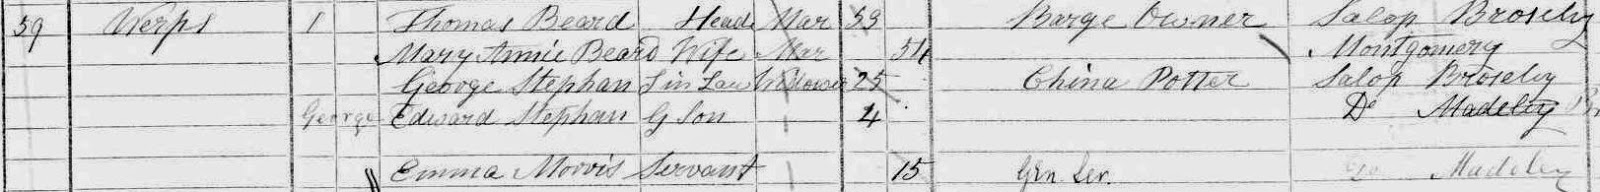 59 Werps 1 Thomas Beard Head Mar 53 Barge Owner Salop Broseley
Mary Annie Beard Wife Mar 54 Montgomery
George Stephan S in Law Widower 25 China Potter Salop Broseley
George Edward Stephan G Son 4 Do Madeley
Emma Morris Servant 15 Gen Ser. Do Madeley